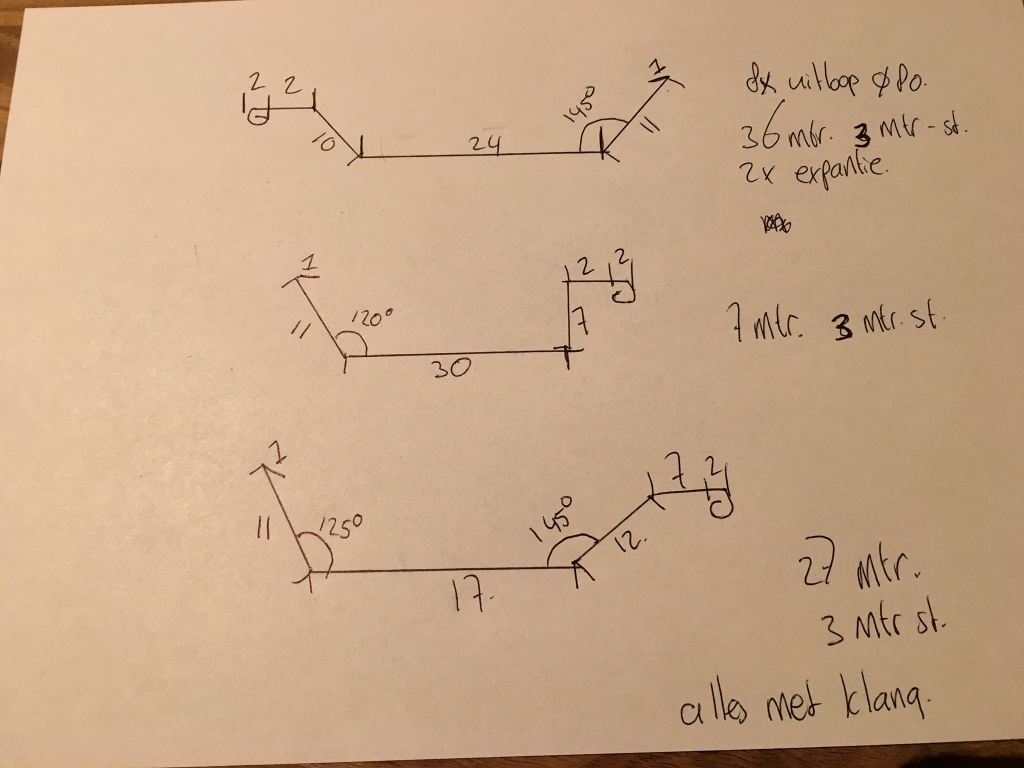 2 2
10
24
145°
11
1
8x uitloop ø80.
36 mtr. 3 mtr-st.
2x expantie.
1
11
120°
30
7
2 2
7 mtr. 3 mtr. st.
1
11
125°
17.
145°
12.
7 2
27 mtr.
3 mtr st.
alles met klang.